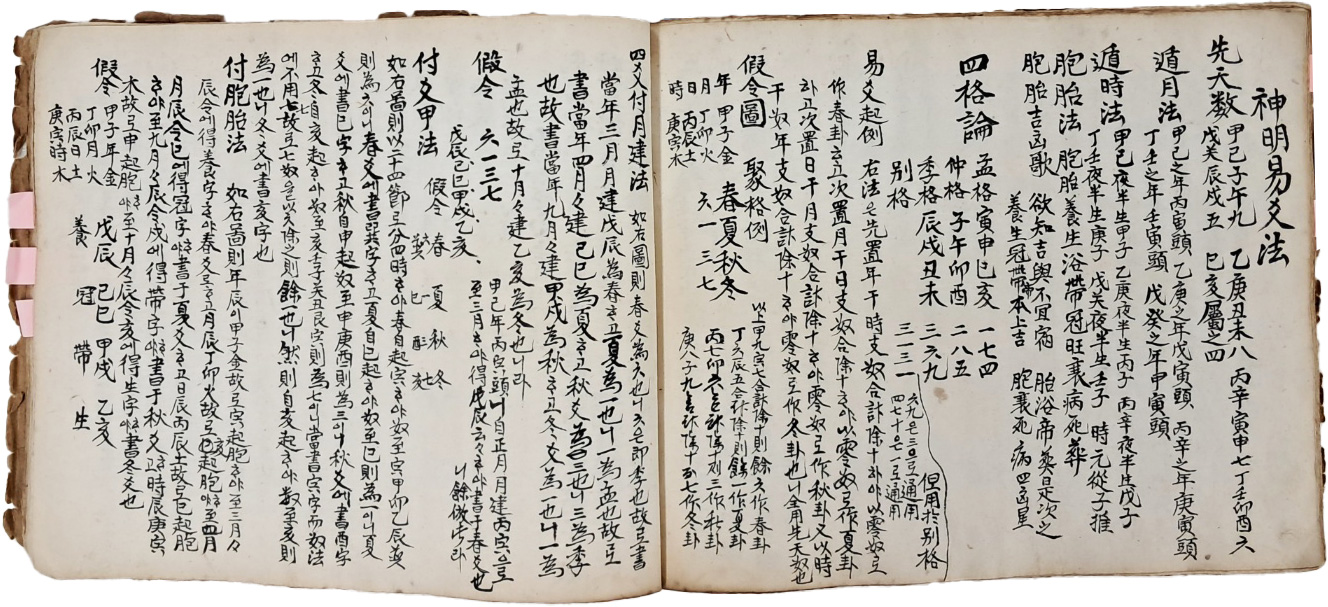 神明易爻法
先天数 甲己子午九 乙庚丑未八 丙辛寅申七 丁壬卯酉六
戊癸辰戌五 巳亥屬之四
遁月法 甲己之年丙寅頭 乙庚之年戊寅頭 丙辛之年庚寅頭
丁壬之年壬寅頭 戊癸之年甲寅頭
遁時法 甲己夜半生甲子 乙庚夜半生丙子 丙辛夜半生戊子
丁壬夜半生庚子 戊癸夜半生壬子 時元從子推
胞胎法 胞胎養生浴帶冠旺衰病死葬
胞胎吉凶歌 欲知吉與不宜宿 胎浴帝葬是次之
養生冠帶本上吉 胞衰死病四凶星
四格論 孟格寅申巳亥 一七四
仲格子午卯酉 二八五
季格辰戌丑未 三六九
別格 三三一
六九은三으로通用
四七十은一로通用
但用於別格
易爻起例 右法은先置年干時支奴合計除十하야以零奴로
作春卦하고次置月干日支奴合除十하야以零奴로作夏卦
하고次置日干月支奴合計除十하야零奴로作秋卦又以時
干奴年支奴合計除十하야零奴로作冬卦也니全用先天奴也
假令圖 聚格例
年 甲子金
月 丁卯火
日 丙辰土
時 庚寅木
春夏秋冬
六一三七
以上甲九寅七合計除十則餘六作春卦
丁六辰五合計除十則餘一作夏卦
四爻付月建法 如右圖則春爻為六也니六은即季也故로書
當年三月月建戊辰為春하고夏為一也니一為孟也故로
書當年四月月建己巳為夏하고秋爻為三也니三為季
也故書當年九月月建甲戌為秋하고冬爻為一也니一為
孟也故로十月月建乙亥為冬也니라
假令 六一三七
戊辰己巳甲戌乙亥
甲己年丙寅頭니自正月月建丙寅으로
至三月하야得戊辰云云하야書于春爻也
니餘倣此라
付爻甲法 假令 春 夏 秋 冬
巽 巳 酉 亥
如右圖則以二十四節로分四時하야春自起寅하야奴至寅甲卯乙辰巽
則為六이니春爻에書巽字하고夏自巳起하야奴至巳則為一이니夏
爻에書巳字하고立秋自申起奴至申庚酉則為三이니秋爻에書酉字
為一也니冬爻에書亥字也
付胞胎法 如右圖則年辰이甲子金故로寅起胞하야至三月月
辰令에得養字하야春爻로하고月辰丁卯火故로亥起胞하야至四月
月辰令巳에得冠字하야書于夏爻하고日辰丙辰土故로巳起胞
하야至九月月辰令戌에得帶字하야書于秋爻하고時辰庚寅
木故로申起胞하야至十月月辰令亥에得生字하야書冬爻也
假令 甲子年金
丁卯月火
丙辰日土
庚寅時木
戊辰 己巳 甲戌 乙亥
養 冠 帶 生